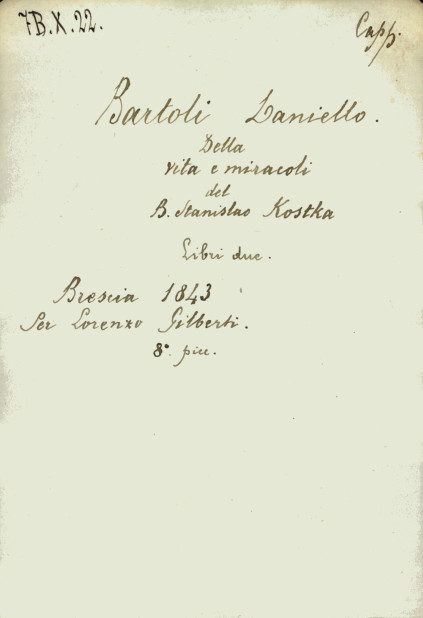 7B.X.22.
Capp.
Bartoli Daniello.
Della
vita e miracoli
del
B. Stanislao Kostka
Libri due.
Brescia 1843
Per Lorenzo Gilberti.
8° picc.